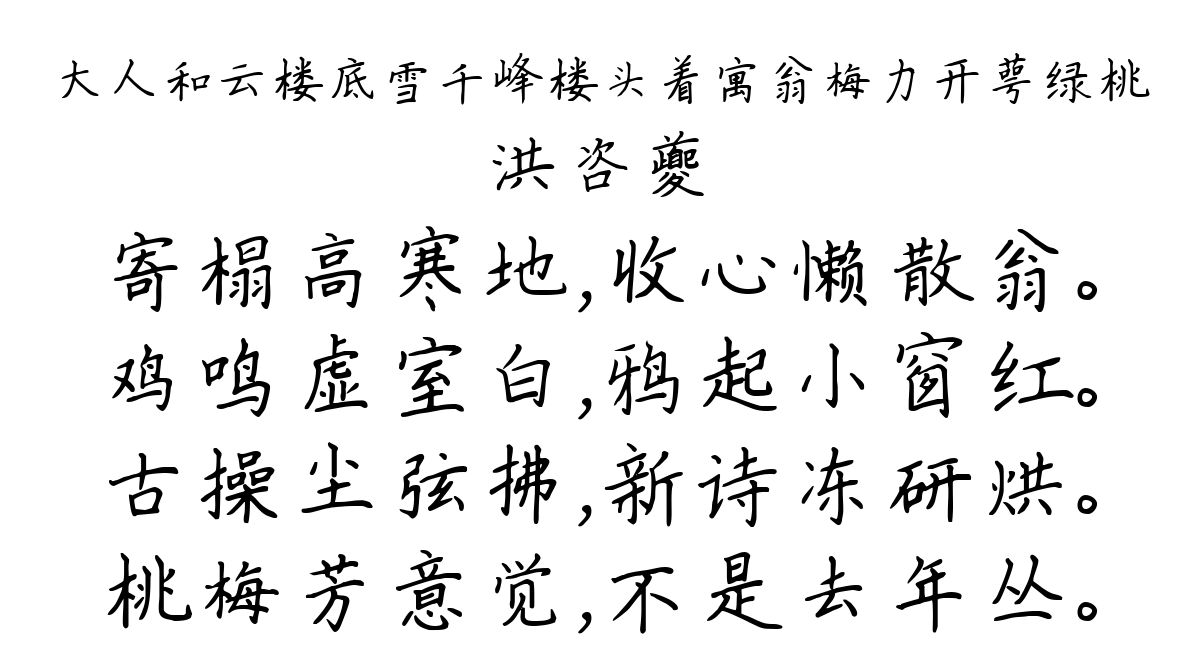 大人和云楼底雪千峰楼头着寓翁梅力开萼绿桃
洪咨夔
寄榻高寒地,收心懒散翁。
鸡鸣虚室白,鸦起小窗红。
古操尘弦拂,新诗冻研烘。
桃梅芳意觉,不是去年丛。